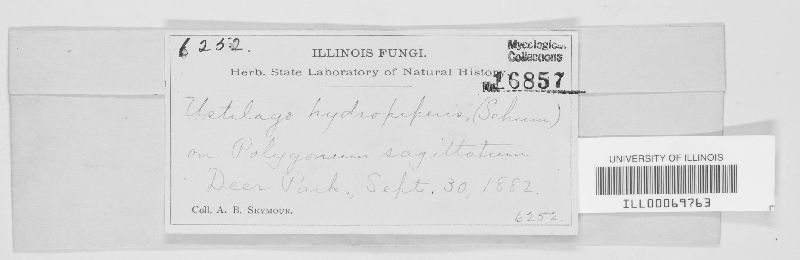 6252.
ILLINOIS FUNGI.
Mycological
Collections
Herb. State Laboratory of Natural History.
No. 16857
Ustilago hydropiperis, (Schum)
on Polygonum sagittatum
Deer Park, Sept. 30, 1882.
Coll. A. B. Seymour.
6252.
UNIVERSITY OF ILLINOIS
ILL00069763